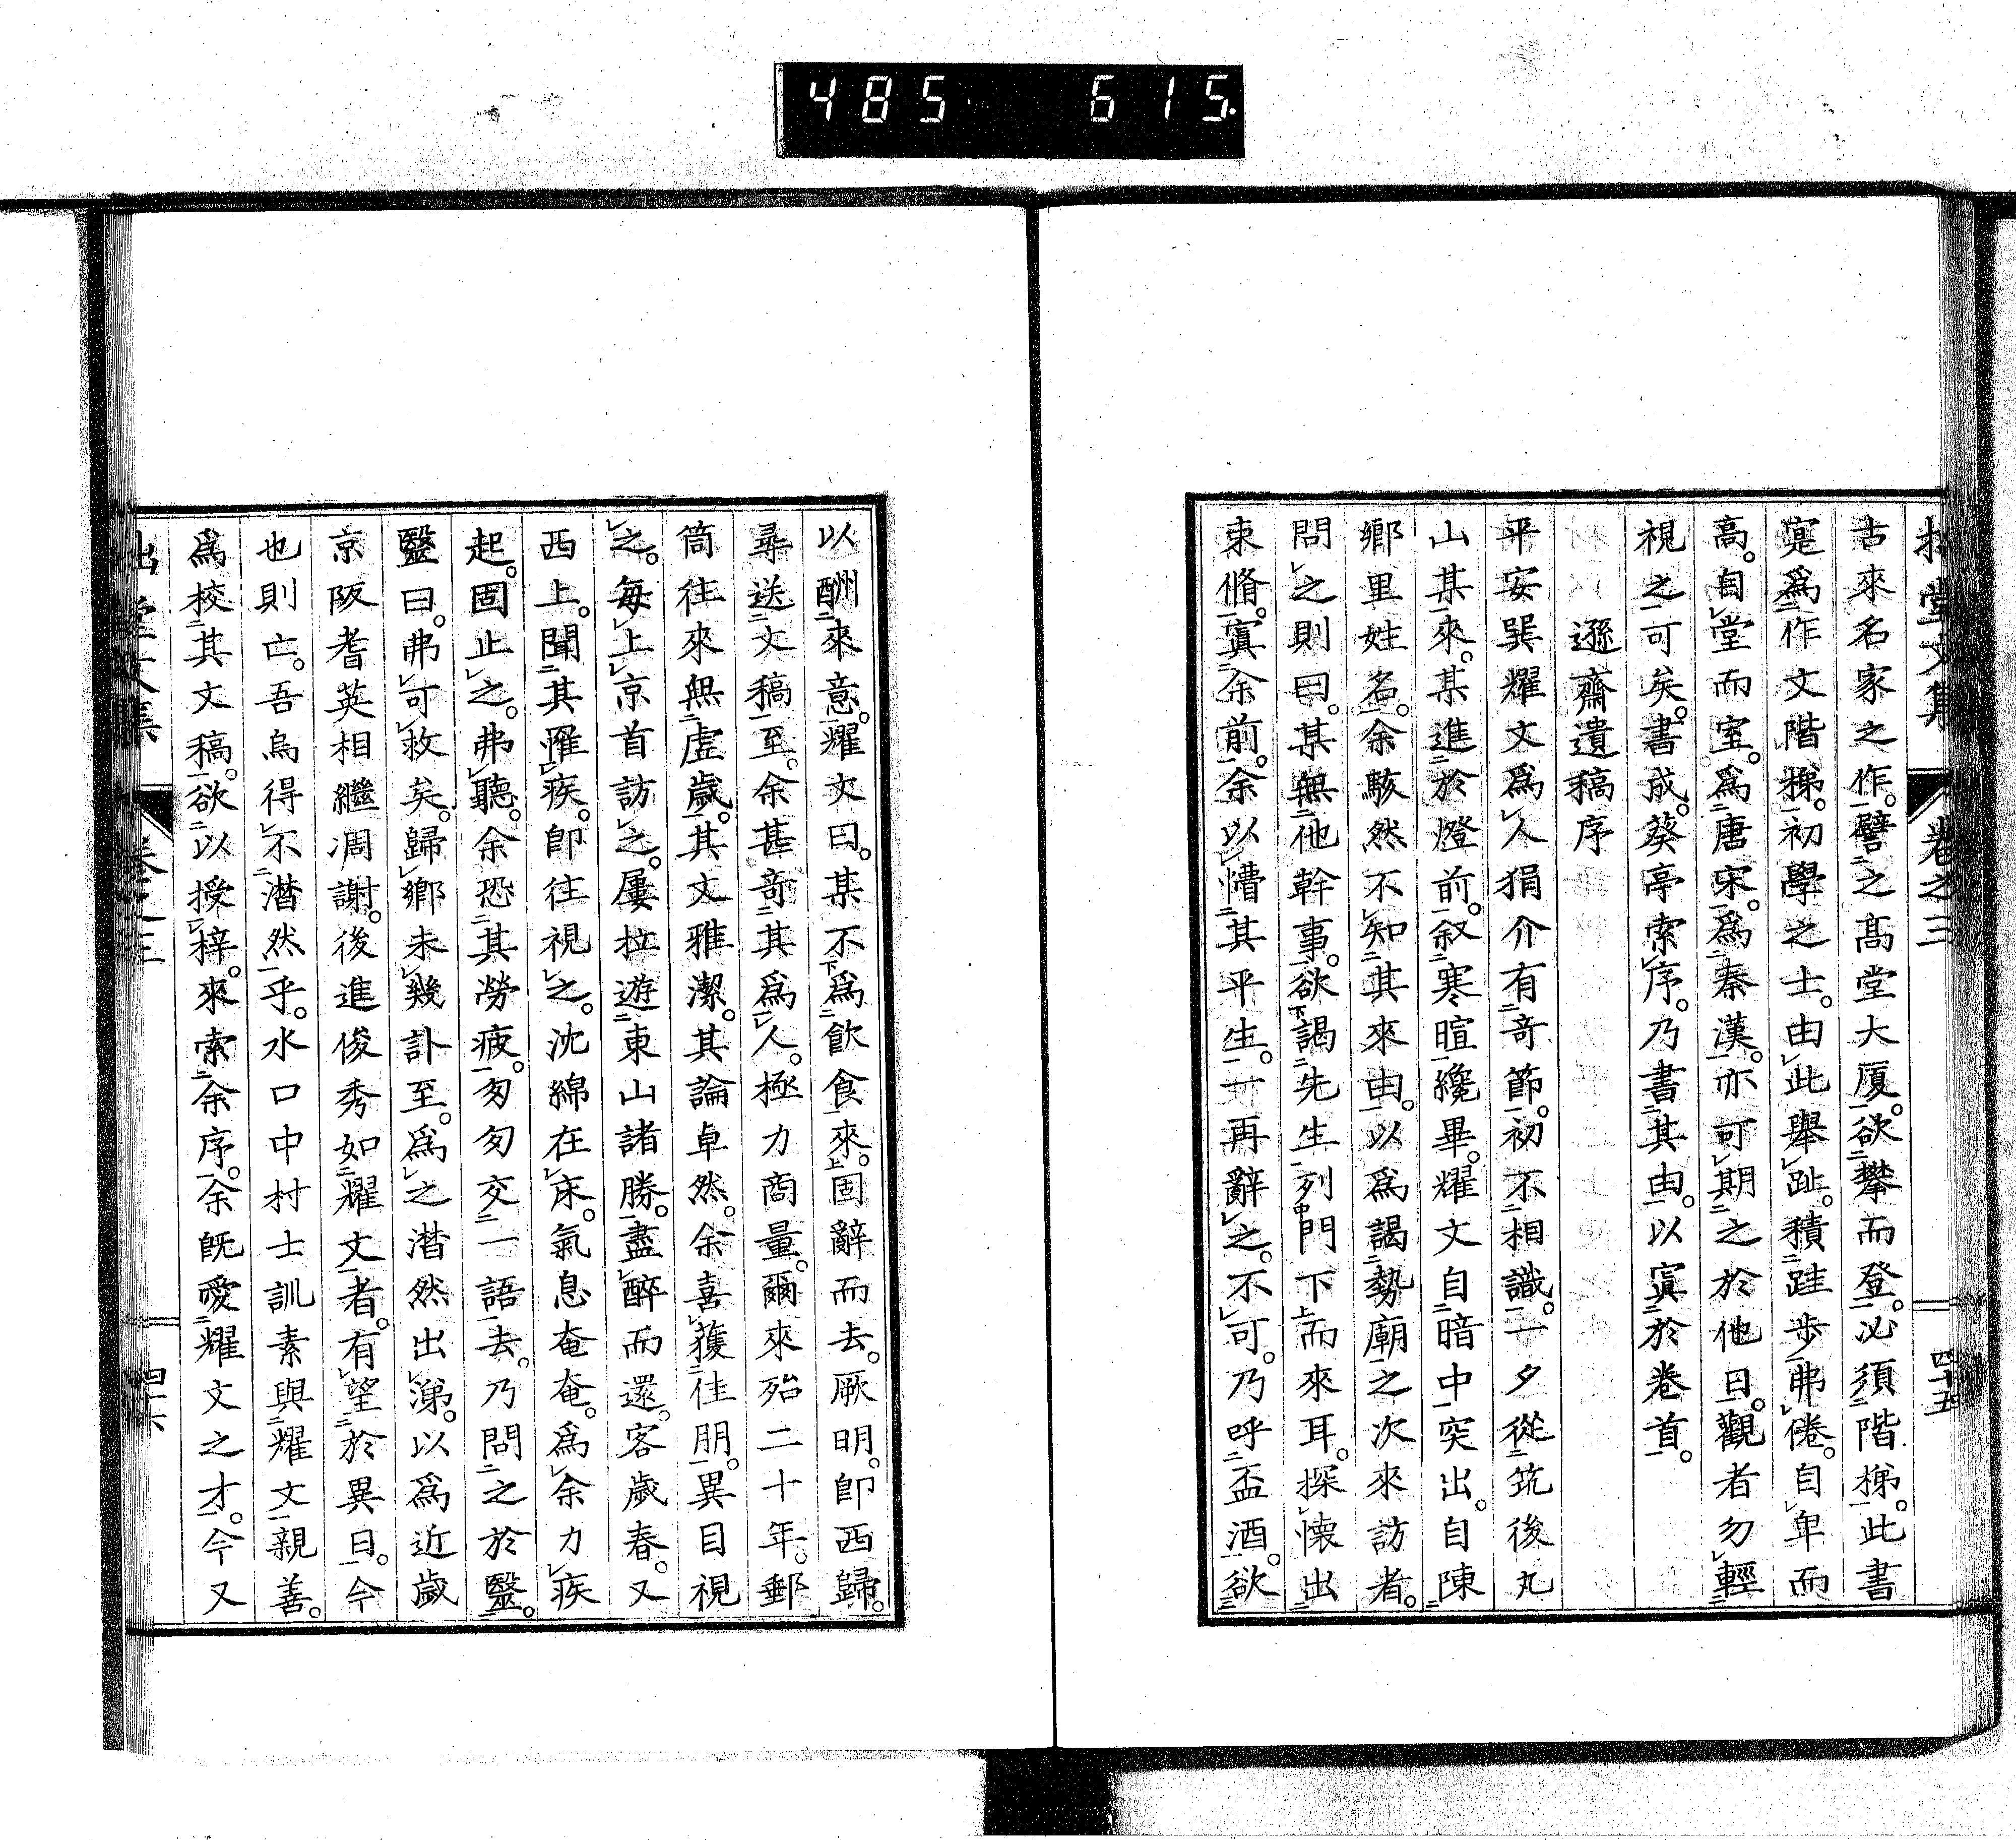 485 615
拙堂文集 卷之三 四十五
古來名家之作。譬之髙堂大厦。欲攀而登。必須階梯。此書
寔爲作文階梯。初學之士。由此舉趾。積跬步弗倦。自卑而
高。自堂而室。爲唐宋。爲秦漢。亦可期之於他日。觀者勿輕
視之可矣。書成。葵亭索序。乃書其由。以寘於卷首。
遜齋遺稿序
平安巽耀文爲人狷介有奇節。初不相識。一夕從筑後丸
山某來。某進於燈前。叙寒暄纔畢。耀文自暗中突出。自陳
鄉里姓名。余駭然不知其來由。以爲謁勢廟之次來訪者。
問之則曰。某無他幹事。欲謁先生列門下而來耳。探懷出
束脩。寘余前。余以懵其平生。一再辭之。不可。乃呼盃酒。欲
以酬來意。耀文曰。某不爲飮食來。固辭而去。厥明。卽西歸。
尋送文稿至。余甚奇其爲人。極力商量。爾來殆二十年。郵
筒往來無虛歲。其文雅潔。其論卓然。余喜獲佳朋。異目視
之。每上京首訪之。屢拉遊東山諸勝。盡醉而還。客歲春。又
西上。聞其罹疾。卽往視之。沈綿在床。氣息奄奄。爲余力疾
起。固止之。弗聽。余恐其勞疲。匆匆交一語去。乃問之於醫。
醫曰。弗可救矣。歸鄉未幾訃至。爲之潸然出涕。以爲近歲
京阪耆英相繼凋謝。後進俊秀如耀文者。有望於異日。今
也則亡。吾烏得不潸然乎。水口中村士訓素與耀文親善。
爲校其文稿。欲以授梓。來索余序。余旣愛耀文之才。今又
拙堂文集 卷之三 四十六